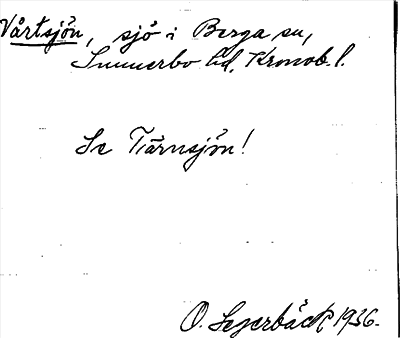 Vårtsjön, sjö i Berga sn,
Sunnerbo hd, Kronob. l.
Se Tärnsjön!
O. Segerbäck 1936.